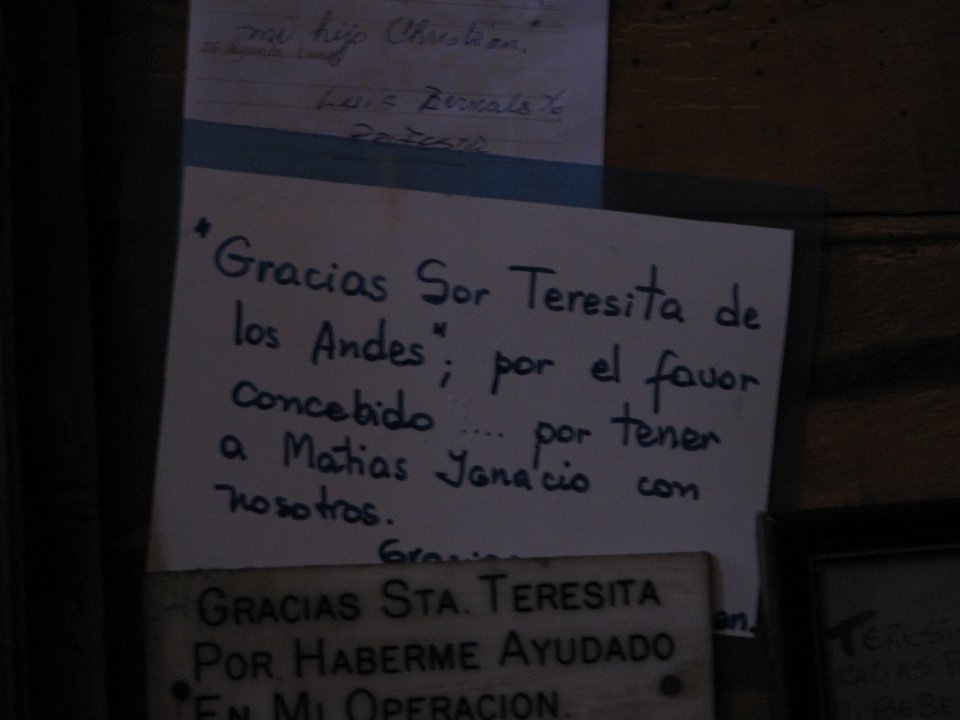 mi hijo Christian."
Luis Bernals
"Gracias Sor Teresita de
los Andes"; por el favor
concebido .... por tener
a Matias Ignacio con
nosotros.
GRACIAS STA. TERESITA
POR HABERME AYUDADO
EN MI OPERACION.